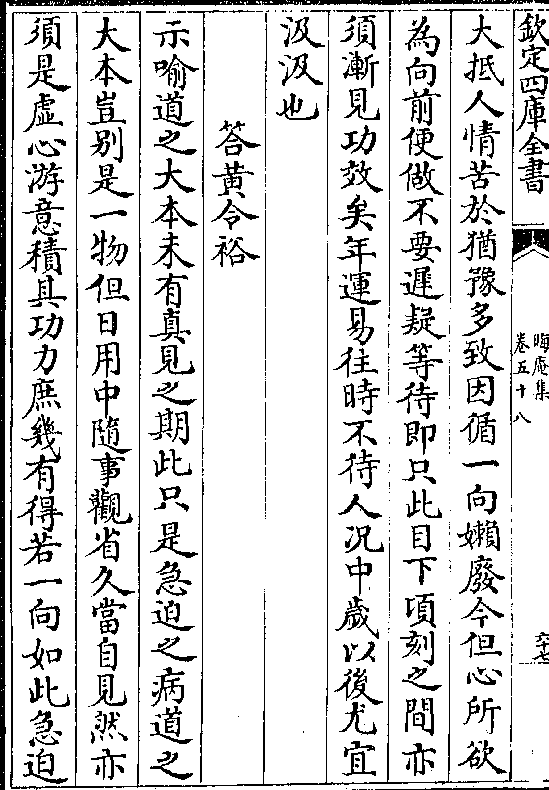 欽定四庫全書
晦庵集
卷五十八
六十七
大抵人情苦於猶豫多致因循一向嬾廢今但心所欲
為向前便做不要遲疑等待即只此目下頃刻之間亦
須漸見功效矣年運易往時不待人况中歲以後尤宜
汲汲也
答黄令裕
示喻道之大本未有真見之期此只是急迫之病道之
大本豈别是一物但日用中隨事觀省久當自見然亦
須是虚心游意積其功力庶幾有得若一向如此急迫